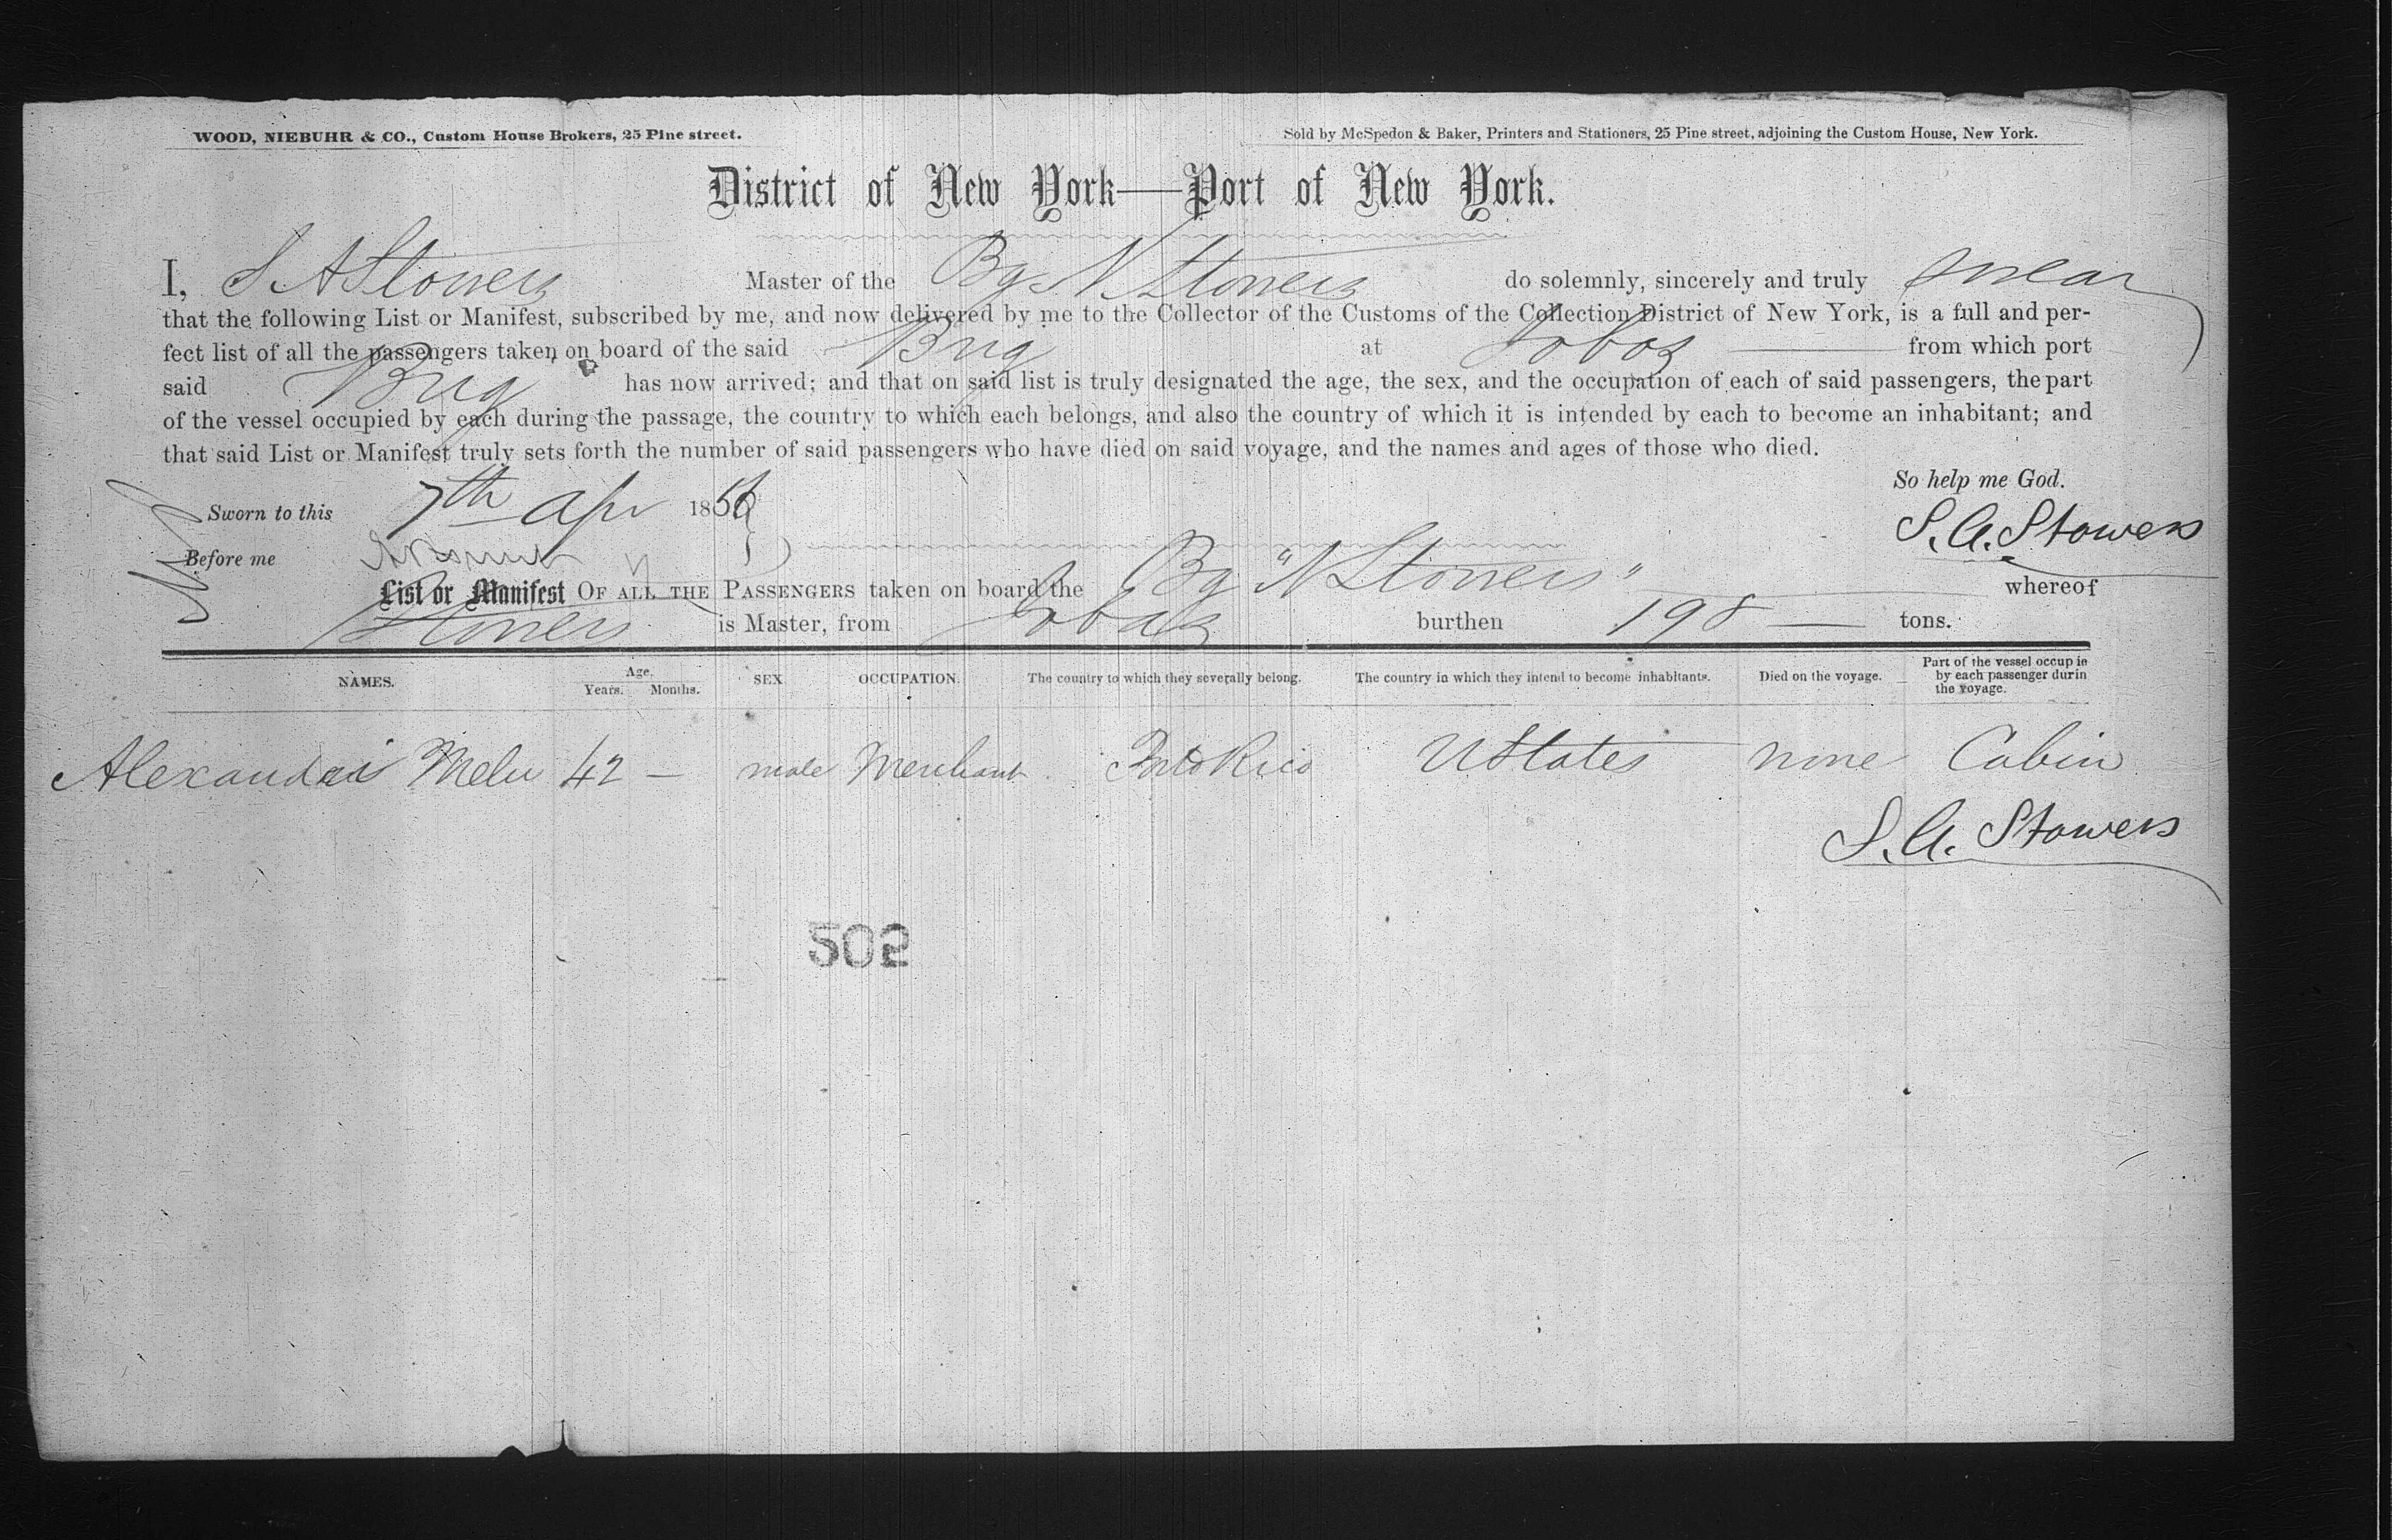 WOOD, NIEBUHR & CO., Custom House Brokers, 25 Pine street. Sold by McSpedon & Baker, Printers and Stationers, 25 Pine street, adjoining the Custom House, New York.
District of New York—Port of New York.
I, S A Stowers Master of the Bg N Stowers do solemnly, sincerely and truly swear
that the following List or Manifest, subscribed by me, and now delivered by me to the Collector of the Customs of the Collection District of New York, is a full and per-
fect list of all the passengers taken on board of the said Brig at Jobos from which port
said Brig has now arrived; and that on said list is truly designated the age, the sex, and the occupation of each of said passengers, the part
of the vessel occupied by each during the passage, the country to which each belongs, and also the country of which it is intended by each to become an inhabitant; and
that said List or Manifest truly sets forth the number of said passengers who have died on said voyage, and the names and ages of those who died.
So help me God.
Sworn to this 7th Apr 1856 S. A. Stowers
Before me
List or Manifest OF ALL THE PASSENGERS taken on board the Bg "N Stowers" whereof
Stowers is Master, from Jobos burthen 198 tons.
NAMES. Age. Years. Months. SEX OCCUPATION. The country to which they severally belong. The country in which they intend to become inhabitants. Died on the voyage. Part of the vessel occupie by each passenger durin the voyage.
Melu 42 — male Merchant Porto Rico U States none Cabin
S. A. Stowers
502